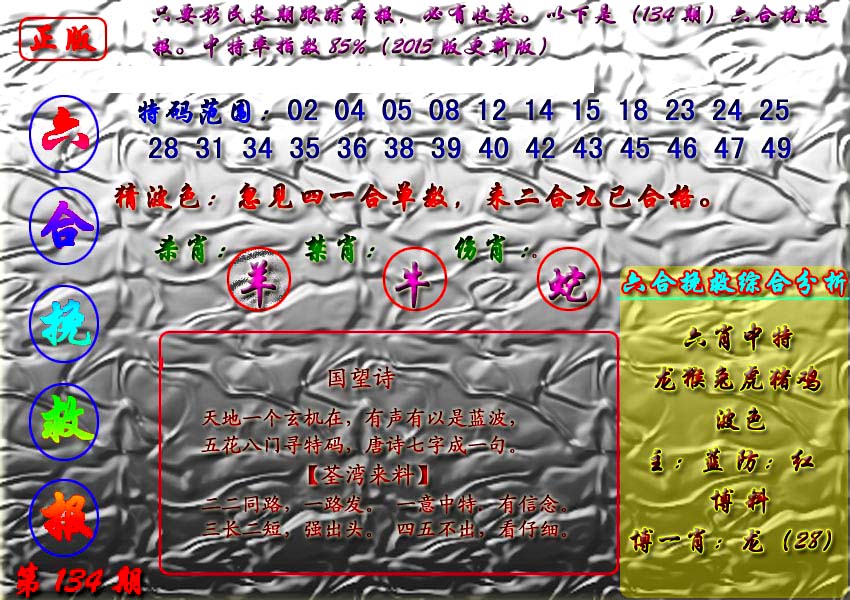 正版
只要彩民长期跟踪本报，必有收获。以下是（134期）六合挽救
报。中特率指数85%（2015版更新版）
六合挽救报
第134期
特码范围：02 04 05 08 12 14 15 18 23 24 25
28 31 34 35 36 38 39 40 42 43 45 46 47 49
猜波色：忽见四一合单数，来二合九已合格。
杀肖：羊 禁肖：牛 伤肖：蛇。
国望诗
天地一个玄机在，有声有以是蓝波，
五花八门寻特码，唐诗七字成一句。
【荃湾来料】
二二同路，一路发。 一意中特，有信念。
三长二短，强出头。 四五不出，看仔细。
六合挽救综合分析
六肖中特
龙猴兔虎猪鸡
波色
主：蓝防：红
博料
博一肖：龙（28）